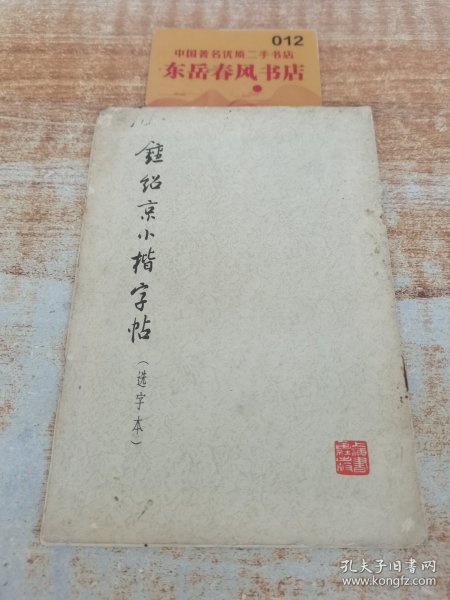 012
中国著名优质二手书店
东岳春风书店
鍾绍京小楷字帖
（选字本）
上海書畫社
孔夫子旧书网
www.kongfz.com